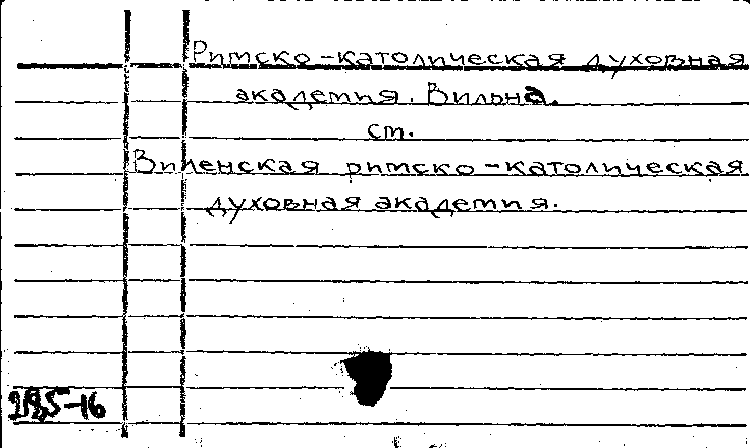 Римско-католическая духовная
академия. Вильна.
см.
Виленская римско-католическая
духовная академия.